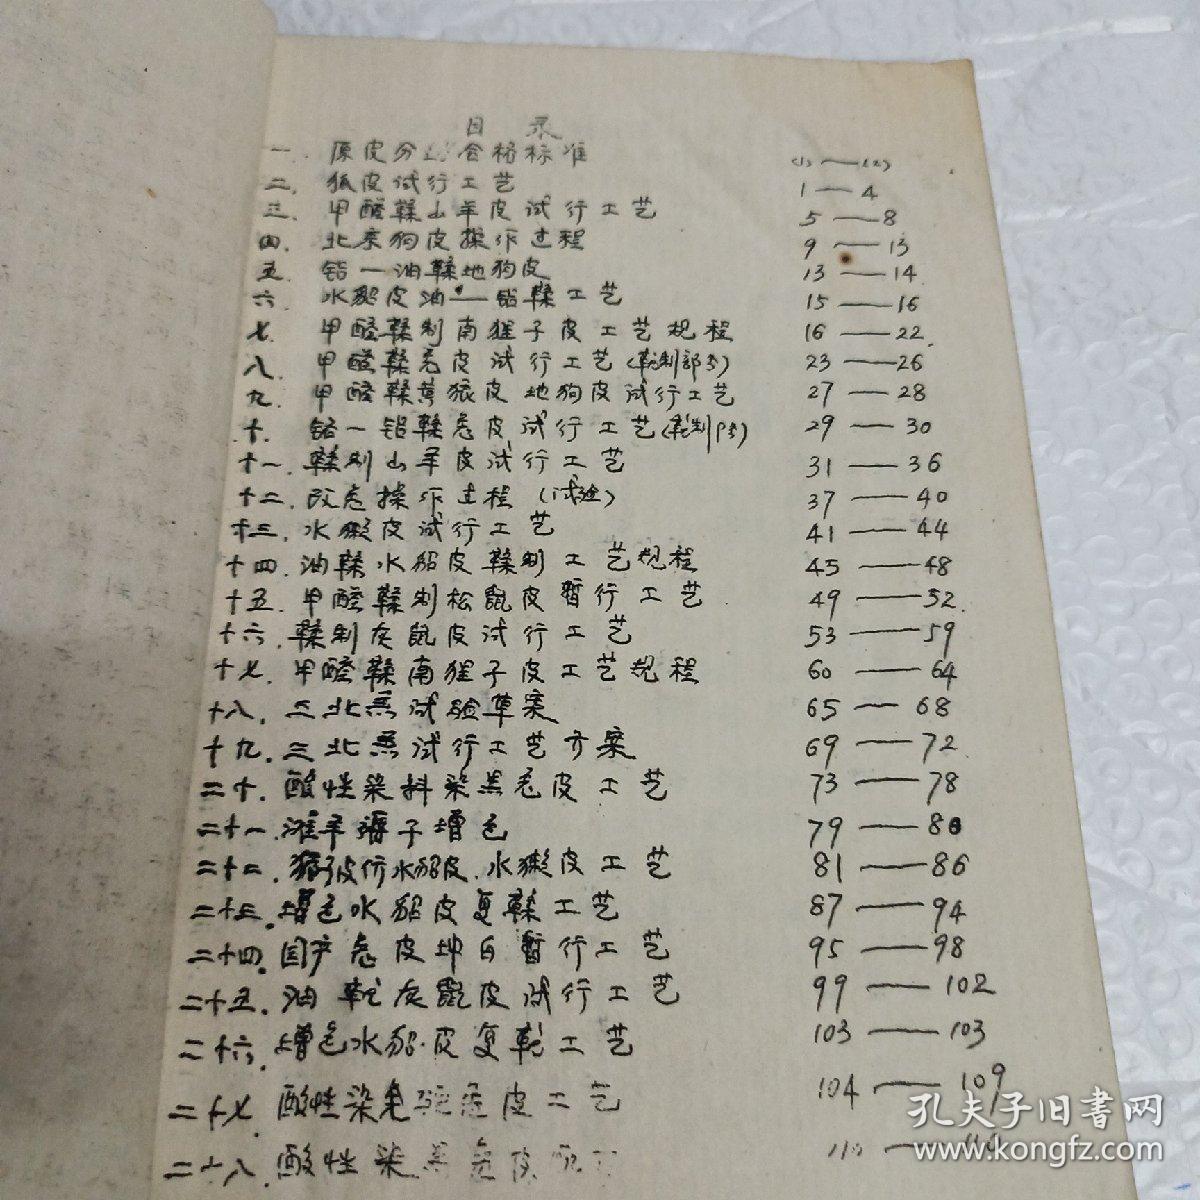 目 录
一. 原皮分 合格标准 (1)——(2)
二. 狐皮试行工艺 1——4
三. 甲醛鞣山羊皮试行工艺 5——8
四. 北京狗皮操作过程 9——13
五. 铬一油鞣地狗皮 13——14
六. 水貂皮油——铝鞣工艺 15——16
七. 甲醛鞣制南狸子皮工艺规程 16——22.
八. 甲醛鞣兎皮试行工艺(鞣制部分) 23——26
九. 甲醛鞣 猿皮地狗皮试行工艺 27——28
十. 铬一铝鞣兎皮试行工艺 29——30
十一. 鞣制山羊皮试行工艺 31——36
十二. 改兎操作过程(试验) 37——40
十三. 水獭皮试行工艺 41——44
十四. 油鞣水貂皮鞣制工艺规程 45——48
十五. 甲醛鞣制松鼠皮暂行工艺 49——52.
十六. 鞣制灰鼠皮试行工艺 53——59
十七. 甲醛鞣南狸子皮工艺规程 60——64
十八. 三北羔试验草案 65——68
十九. 三北羔试行工艺方案 69——72
二十. 酸性染料染黑兎皮工艺 73——78
二十一. 滩羊褥子增色 79——80
二十二. 猫皮仿水貂皮.水獭皮工艺 81——86
二十三. 增色水貂皮复鞣工艺 87——94
二十四. 国产兎皮坤白暂行工艺 95——98
二十五. 油 灰鼠皮试行工艺 99——102
二十六. 增色水貂皮复 工艺 103——103
二十七. 酸性染 兎皮工艺 104——109
二十八. 酸性染黑兎皮 110——
孔夫子旧书网
www.kongfz.com